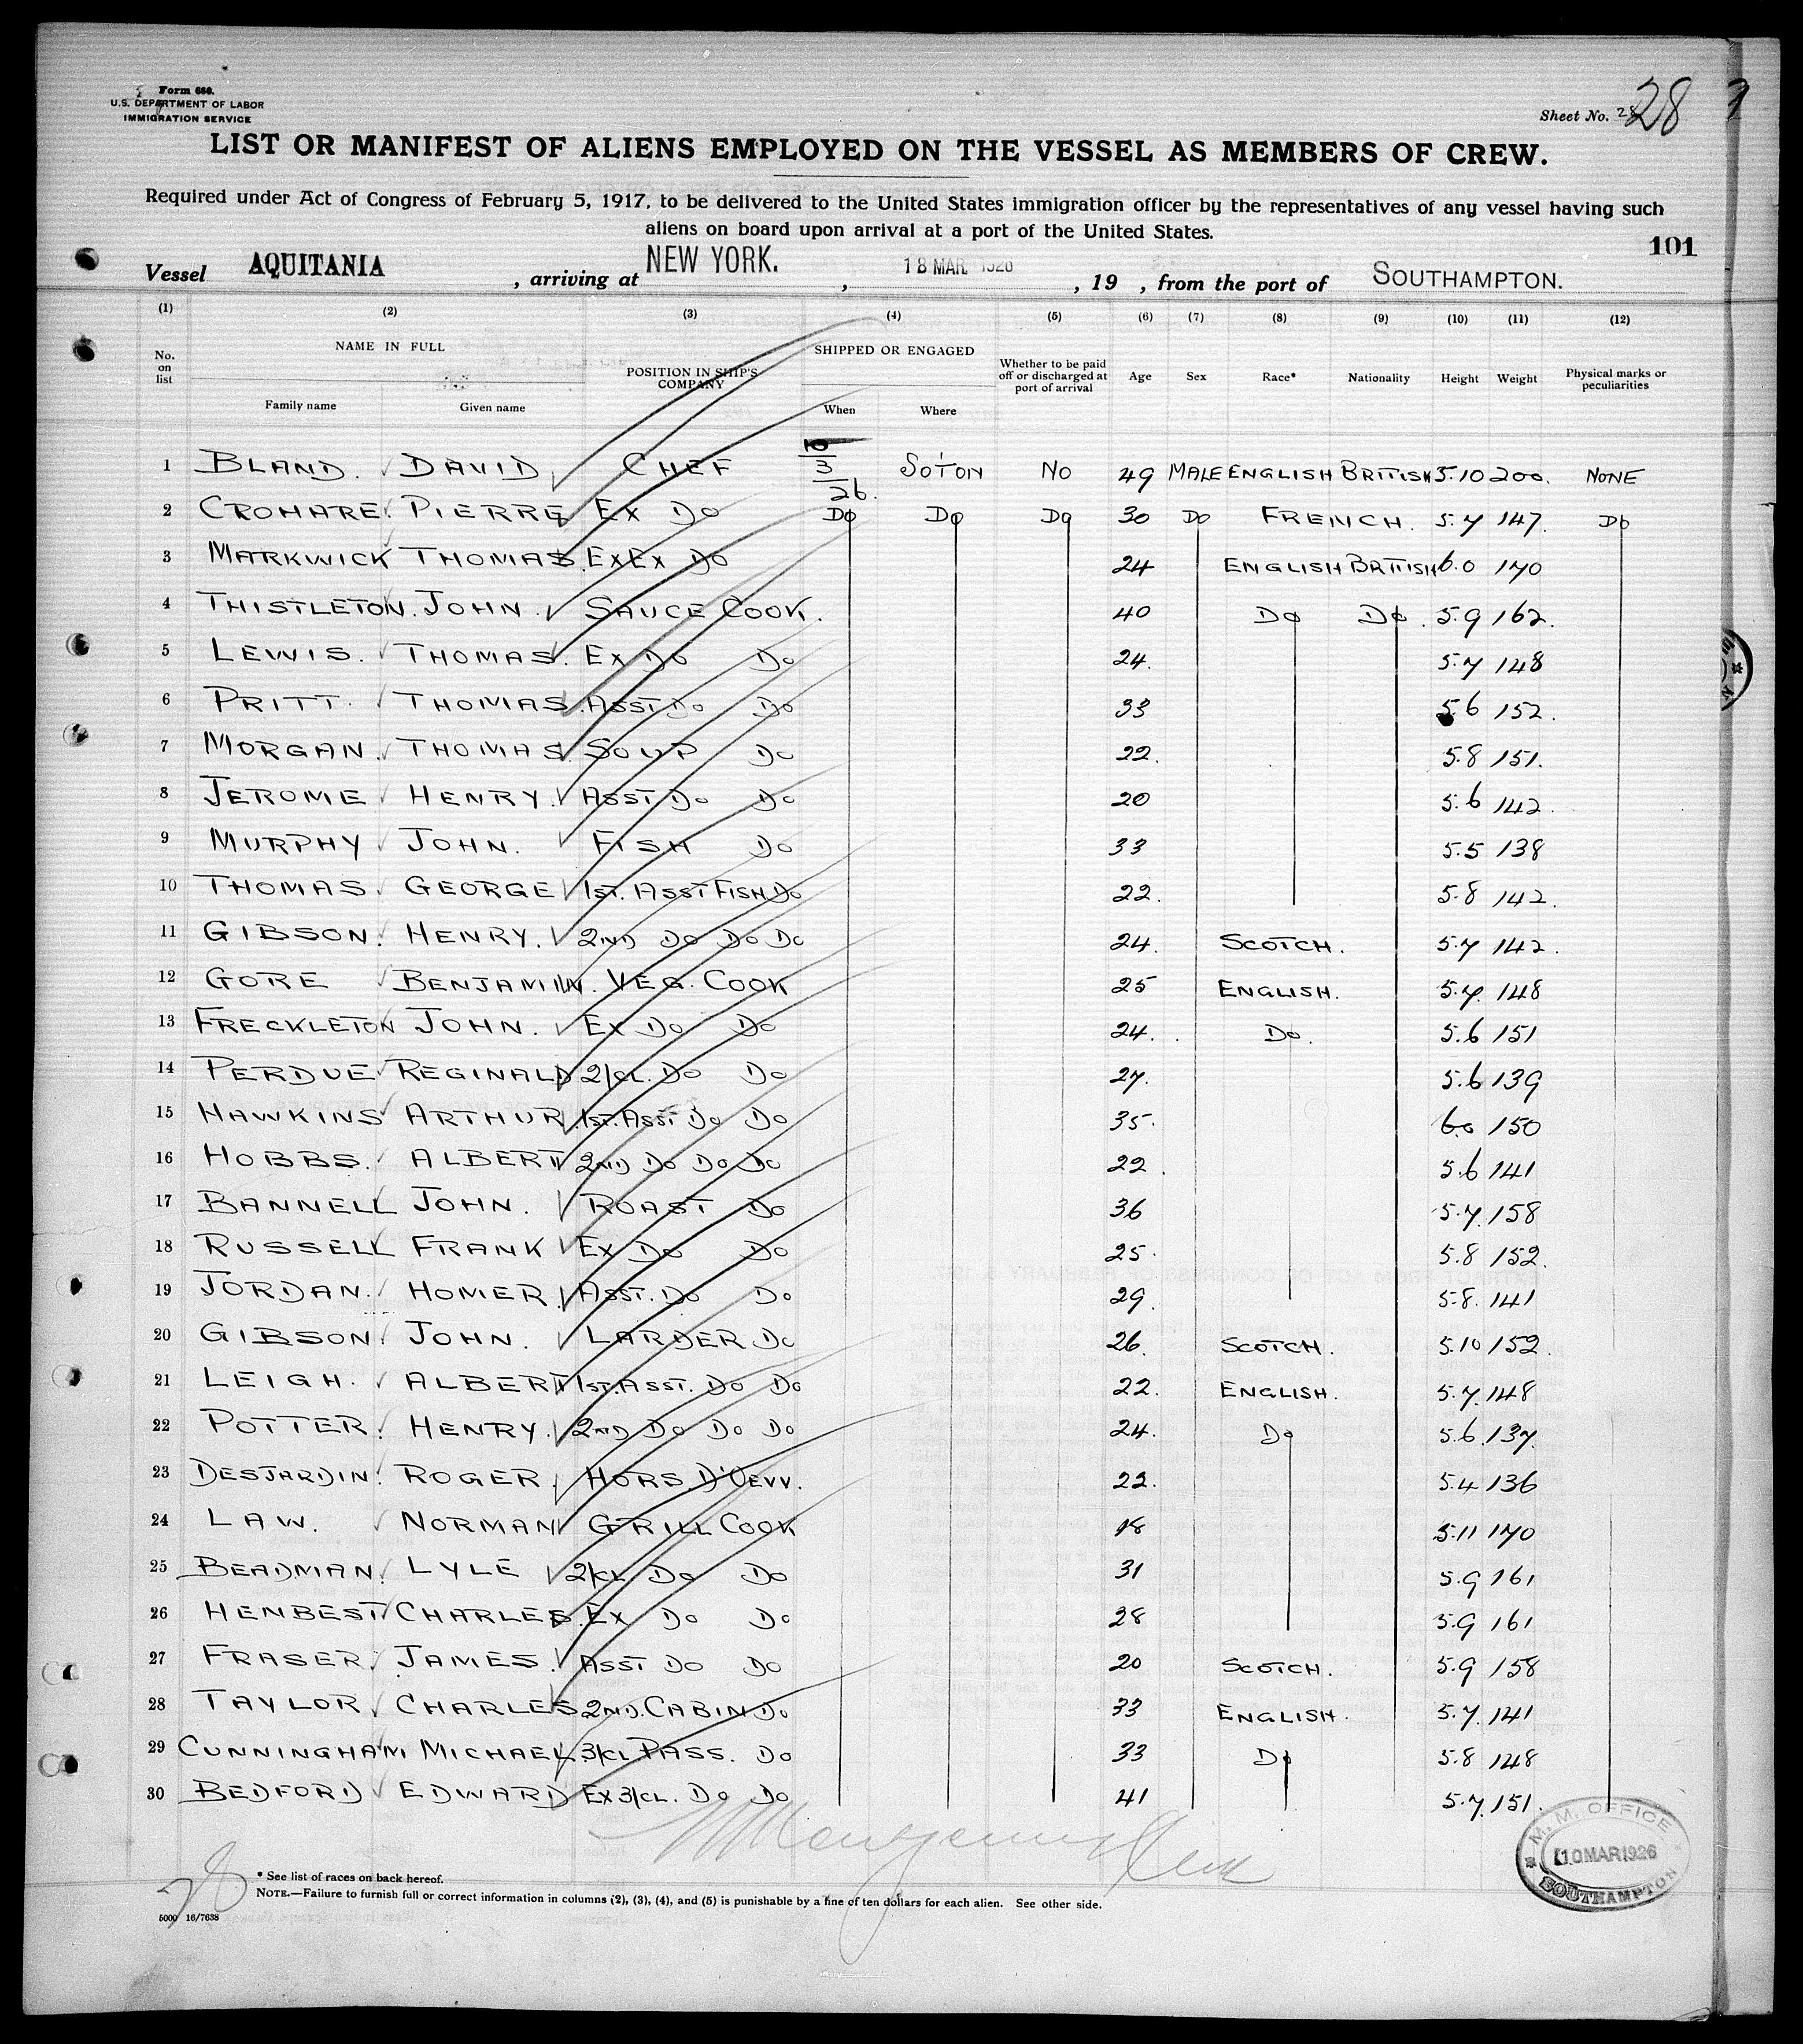 Form 686.
U.S. DEPARTMENT OF LABOR
IMMIGRATION SERVICE
Sheet No. 28 28
LIST OR MANIFEST OF ALIENS EMPLOYED ON THE VESSEL AS MEMBERS OF CREW.
Required under Act of Congress of February 5, 1917, to be delivered to the United States immigration officer by the representatives of any vessel having such
aliens on board upon arrival at a port of the United States.
101
Vessel AQUITANIA , arriving at NEW YORK. , 18 MAR. 1926 , 19 , from the port of SOUTHAMPTON.
(1) (2) (3) (4) (5) (6) (7) (8) (9) (10) (11) (12)
No. on list NAME IN FULL Family name Given name POSITION IN SHIP'S COMPANY SHIPPED OR ENGAGED When Where Whether to be paid off or discharged at port of arrival Age Sex Race* Nationality Height Weight Physical marks or peculiarities
1 BLAND. DAVID CHEF 10/3/26. SO'TON NO 49 MALE ENGLISH BRITISH 5.10 200. NONE
2 CROHARE. PIERRE EX DO DO DO DO 30 DO FRENCH. 5.7 147. DO
3 MARKWICK THOMAS. EXEX DO 24 ENGLISH BRITISH 6.0 170
4 THISTLETON. JOHN. SAUCE COOK. 40 DO DO. 5.9 162.
5 LEWIS. THOMAS. EX DO DO 24. 5.7 148
6 PRITT. THOMAS. ASST DO DO 33 5.6 152.
7 MORGAN. THOMAS. SOUP DO 22. 5.8 151.
8 JEROME HENRY. ASST DO DO 20 5.6 142.
9 MURPHY JOHN. FISH DO 33 5.5 138
10 THOMAS. GEORGE 1ST. ASST FISH DO 22. 5.8 142.
11 GIBSON. HENRY. 2ND DO DO DO 24. SCOTCH. 5.7 142.
12 GORE BENJAMIN. VEG. COOK 25 ENGLISH. 5.7. 148
13 FRECKLETON JOHN. EX DO DO 24. DO. 5.6 151
14 PERDUE REGINALD 2/CL. DO DO 27. 5.6 139
15 HAWKINS ARTHUR. 1ST. ASST DO DO 35. 6.0 150
16 HOBBS. ALBERT 2ND DO DO DO 22. 5.6 141
17 BANNELL JOHN. ROAST DO 36 5.7. 158
18 RUSSELL FRANK EX DO DO 25. 5.8 152.
19 JORDAN. HOMER. ASST. DO DO 29. 5.8. 141
20 GIBSON. JOHN. LARDER DO 26. SCOTCH. 5.10 152.
21 LEIGH. ALBERT 1ST. ASST. DO DO 22. ENGLISH. 5.7. 148
22 POTTER. HENRY. 2ND DO DO DO 24. DO 5.6. 137.
23 DESJARDIN. ROGER. HORS. D'OEVV. 22. 5.4 136
24 LAW. NORMAN GRILL COOK 18 5.11 170
25 BEADMAN. LYLE 2/CL DO DO 31 5.9 161
26 HENBEST CHARLES. EX DO DO 28 5.9 161
27 FRASER. JAMES. ASST DO DO 20 SCOTCH. 5.9 158
28 TAYLOR. CHARLES 2ND. CABIN DO 33 ENGLISH. 5.7. 141
29 CUNNINGHAM MICHAEL. 3/CL PASS. DO 33 DO 5.8 148
30 BEDFORD EDWARD EX 3/CL. DO DO 41 5.7. 151.
M. M. OFFICE
10 MAR 1926
SOUTHAMPTON
28
* See list of races on back hereof.
NOTE.—Failure to furnish full or correct information in columns (2), (3), (4), and (5) is punishable by a fine of ten dollars for each alien. See other side.
5000 16/7638